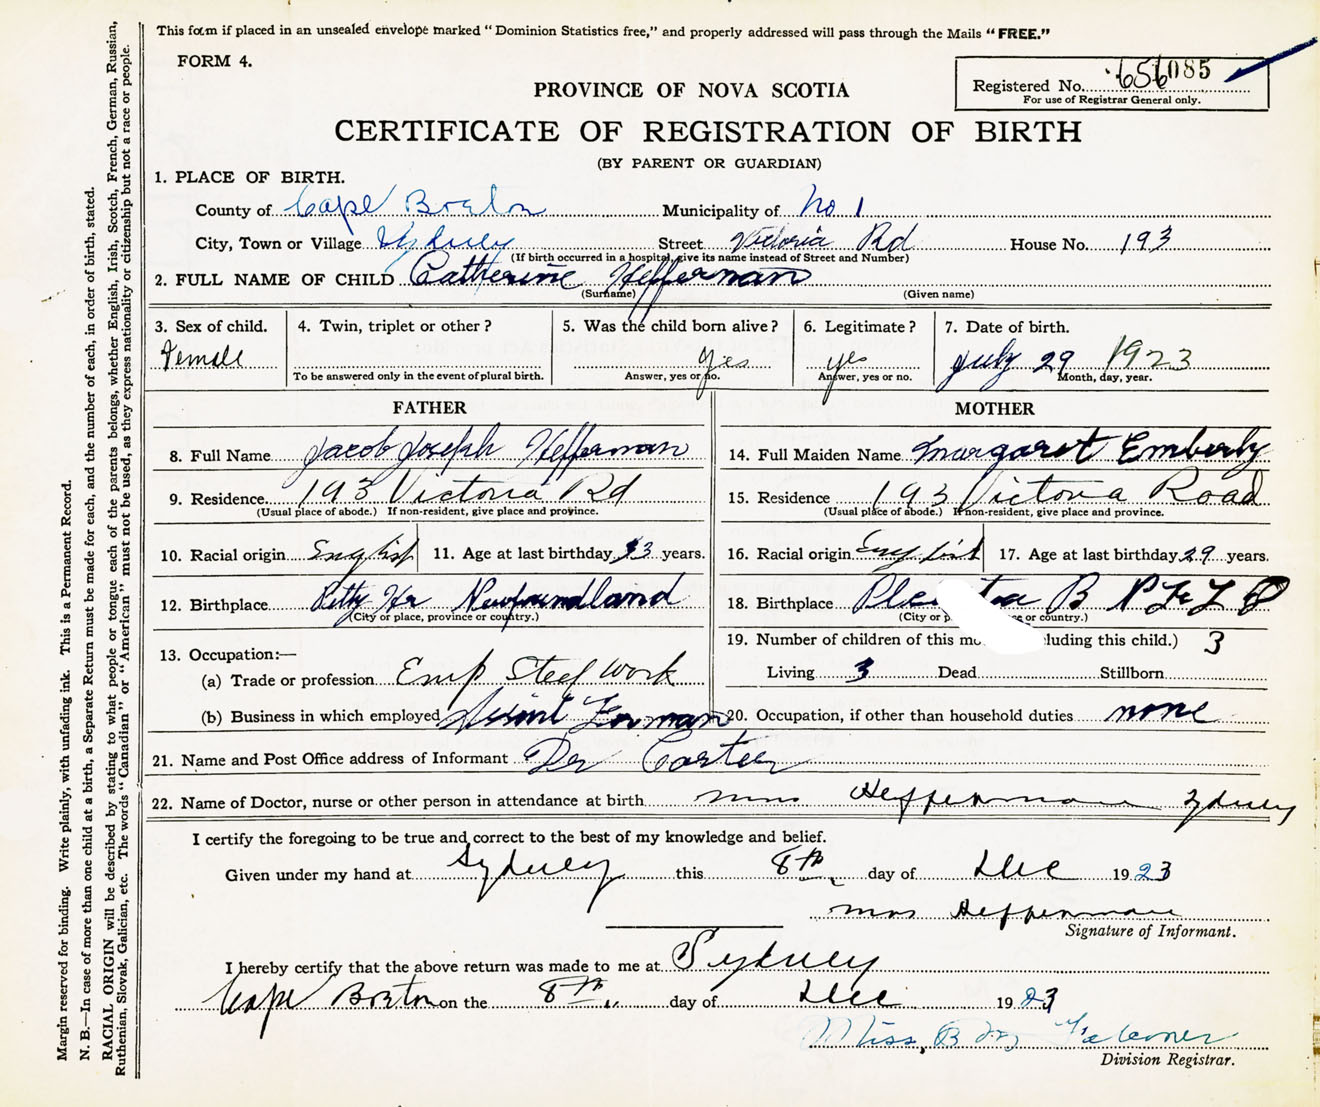 This form if placed in an unsealed envelope marked "Dominion Statistics free," and properly addressed will pass through the Mails "FREE."
FORM 4.
Registered No. 656085
For use of Registrar General only.
PROVINCE OF NOVA SCOTIA
CERTIFICATE OF REGISTRATION OF BIRTH
(BY PARENT OR GUARDIAN)
1. PLACE OF BIRTH.
County of Cape Breton Municipality of No 1
City, Town or Village Sydney Street Victoria Rd House No. 193
(If birth occurred in a hospital, give its name instead of Street and Number)
2. FULL NAME OF CHILD Catherine Heffernan
(Surname) (Given name)
3. Sex of child. 4. Twin, triplet or other? 5. Was the child born alive? 6. Legitimate? 7. Date of birth.
Female yes yes July 29 1923
To be answered only in the event of plural birth. Answer, yes or no. Answer, yes or no. Month, day, year.
FATHER MOTHER
8. Full Name Jacob Joseph Heffernan 14. Full Maiden Name Margaret Emberly
9. Residence. 193 Victoria Rd 15. Residence 193 Victoria Road
(Usual place of abode.) If non-resident, give place and province. (Usual place of abode.) If non-resident, give place and province.
10. Racial origin English 11. Age at last birthday 33 years. 16. Racial origin English 17. Age at last birthday 29 years.
12. Birthplace Petty Hr Newfoundland 18. Birthplace B
(City or place, province or country.) (City or or country.)
13. Occupation:— 19. Number of children of this cluding this child.) 3
(a) Trade or profession Emp Steel Work Living 3 Dead Stillborn
(b) Business in which employed 20. Occupation, if other than household duties none
21. Name and Post Office address of Informant Dr
22. Name of Doctor, nurse or other person in attendance at birth Mrs Heffernan Sydney
I certify the foregoing to be true and correct to the best of my knowledge and belief.
Given under my hand at Sydney this 8th day of Dec 1923
Mrs Heffernan
Signature of Informant.
I hereby certify that the above return was made to me at Sydney
Cape Breton on the 8th day of Dec 1923
Miss B Falconer
Division Registrar.
Margin reserved for binding. Write plainly, with unfading ink. This is a Permanent Record.
N. B.—In case of more than one child at a birth, a Separate Return must be made for each, and the number of each, in order of birth, stated.
RACIAL ORIGIN will be described by stating to what people or tongue each of the parents belongs, whether English, Irish, Scotch, French, German, Russian,
Ruthenian, Slovak, Galician, etc. The words "Canadian" or "American" must not be used, as they express nationality or citizenship but not a race or people.